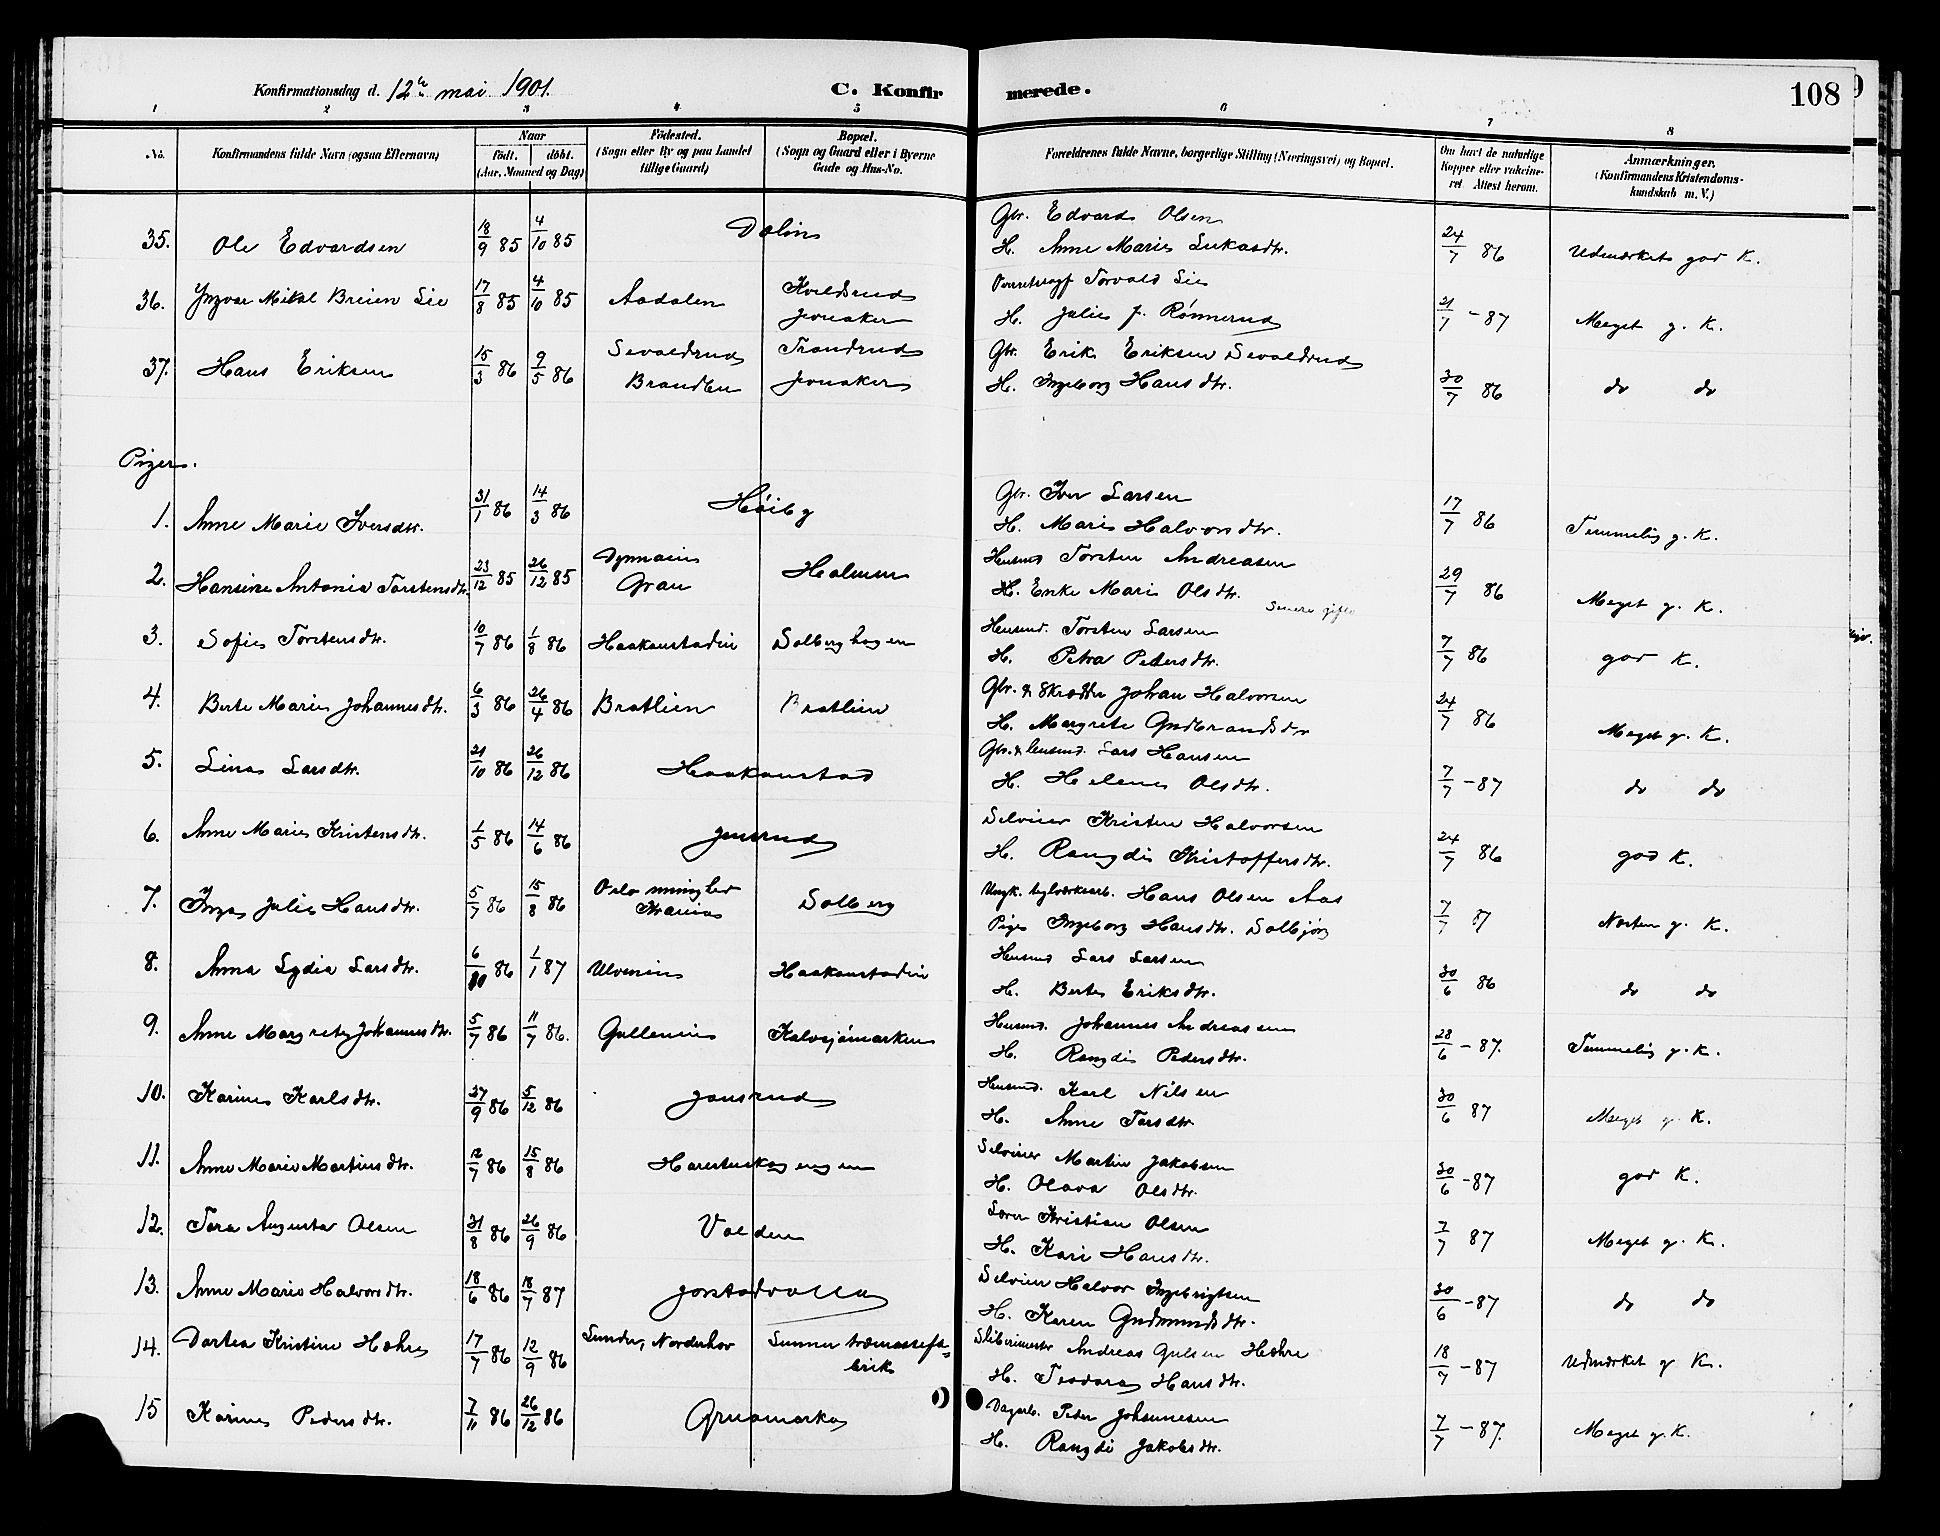 Konfirmationsdag d. 12te mai 1901.
C. Konfirmerede.
108
1 2 3 4 5 6 7 8
No.
Konfirmandens fulde Navn (ogsaa Efternavn)
Naar
födt. döbt.
(Aar, Maaned og Dag)
Födested.
(Sogn eller By og paa Landet tillige Gaard)
Bopæl.
(Sogn og Gaard eller i Byerne Gade og Hus-No.
Forældrenes fulde Navne, borgerlige Stilling (Næringsvei) og Bopæl.
Om havt de naturlige Kopper eller vakcineret. Attest herom.
Anmærkninger.
(Konfirmandens Kristendomskundskab m. V.)
35. Ole Edvardsen 18/9 85 4/10 85 Dælin Gbr. Edvard Olsen
H. Anne Marie Lukasdtr. 24/7 86 Udmærket god K.
36. Yngvar Mikal Breien Lie 17/8 85 4/10 85 Aadalen Kveldsrud Jevnaker Torvald Lie
H. Julie f. Rønnerud 21/7 - 87 Meget g. K.
37. Hans Eriksen 15/3 86 9/5 86 Sevaldrud Brandbu Trandrud Jevnaker Gbr. Erik Eriksen Sevaldrud
H. Ingeborg Hansdtr. 30/7 86 do do
Piger.
1. Anne Marie Iversdtr. 31/1 86 14/3 86 Høiby Gbr. Iver Larsen
H. Marie Halvorsdtr. 17/7 86 Temmelig g. K.
2. Hansine Antonia Torstensdtr. 23/12 85 26/12 85 Dynnaeie Gran Holmen Husmd Torsten Andreasen
H. Enke Marie Olsdtr. Senere gifte 29/7 86 Meget g. K.
3. Sofie Torstensdtr. 10/7 86 1/8 86 Haakanstadeie Solberghagen Husmd. Torsten Larsen
H. Petra Pedersdtr. 7/7 86 god K.
4. Berte Marie Johannesdtr. 6/3 86 26/4 86 Bratlien Bratlien Gbr. & Skrædder Johan Halvorsen
H. Margrete Gudbrandsdtr 24/7 86 Meget g. K.
5. Lina Larsdtr. 21/10 86 26/12 86 Haakanstad Gbr. & husmd. Lars Hansen
H. Helene Olsdtr. 7/7 - 87 do do
6. Anne Marie Kristensdtr. 1/5 86 14/6 86 Jensrud Selveier Kristen Halvorsen
H. Rangdi Kristoffersdtr. 24/7 86 god K.
7. Inga Julie Hansdtr. 5/7 86 15/8 86 Oslo menighed Kr.ania Solberg Ungk. teglværksarb. Hans Olsen Aas
Pige Ingeborg Hansdtr. Solbjørg 7/7 87 Næsten g. K.
8. Anna Lydia Larsdtr. 6/10 86 1/1 87 Ulveneie Haakanstadeie Husmd Lars Larsen
H. Berte Eriksdtr. 30/6 86 do do
9. Anne Margrete Johannesdtr. 5/7 86 11/7 86. Gulleneie Kalvsjømarken Husmd. Johannes Andreasen
H. Rangdi Pedersdtr. 28/6 - 87. Temmelig g. K.
10. Karine Karlsdtr. 27/9 86 5/12 86 Jonsrud Husmd. Karl Nilsen
H. Anne Larsdtr 30/6 87 Meget g. K.
11. Anne Marie Martinsdtr. 12/7 86 15/8 86 Harestuskogengen Selveier Martin Jakobsen
H. Olava Olsdtr. 30/6 - 87 god K.
12. Tora Augusta Olsen 31/8 86 26/9 86 Volden Lærer Kristian Olsen
H. Kari Hansdtr. 7/7 87 Meget g. K.
13. Anne Marie Halvorsdtr. 18/6 86 18/7 87 Jorstadvolla Selveier Halvor Ingebrigtsen
H. Karen Gudmundsdtr. 30/6 - 87 do do
14. Dortea Kristine Hæhre 17/7 86 12/9 86 Lunder, Norderhov Lunner træmassefabrik Sliberimester Andreas Gulsen Hæhre
H. Teodora Hansdtr. 18/7 - 87 Udmærket g K.
15 Karine Pedersdtr. 7/11 86 26/12 86 Gruamarka Dagarb. Peder Johannesen
H. Rangdi Jakobsdtr. 7/7 - 87. Meget g. K.